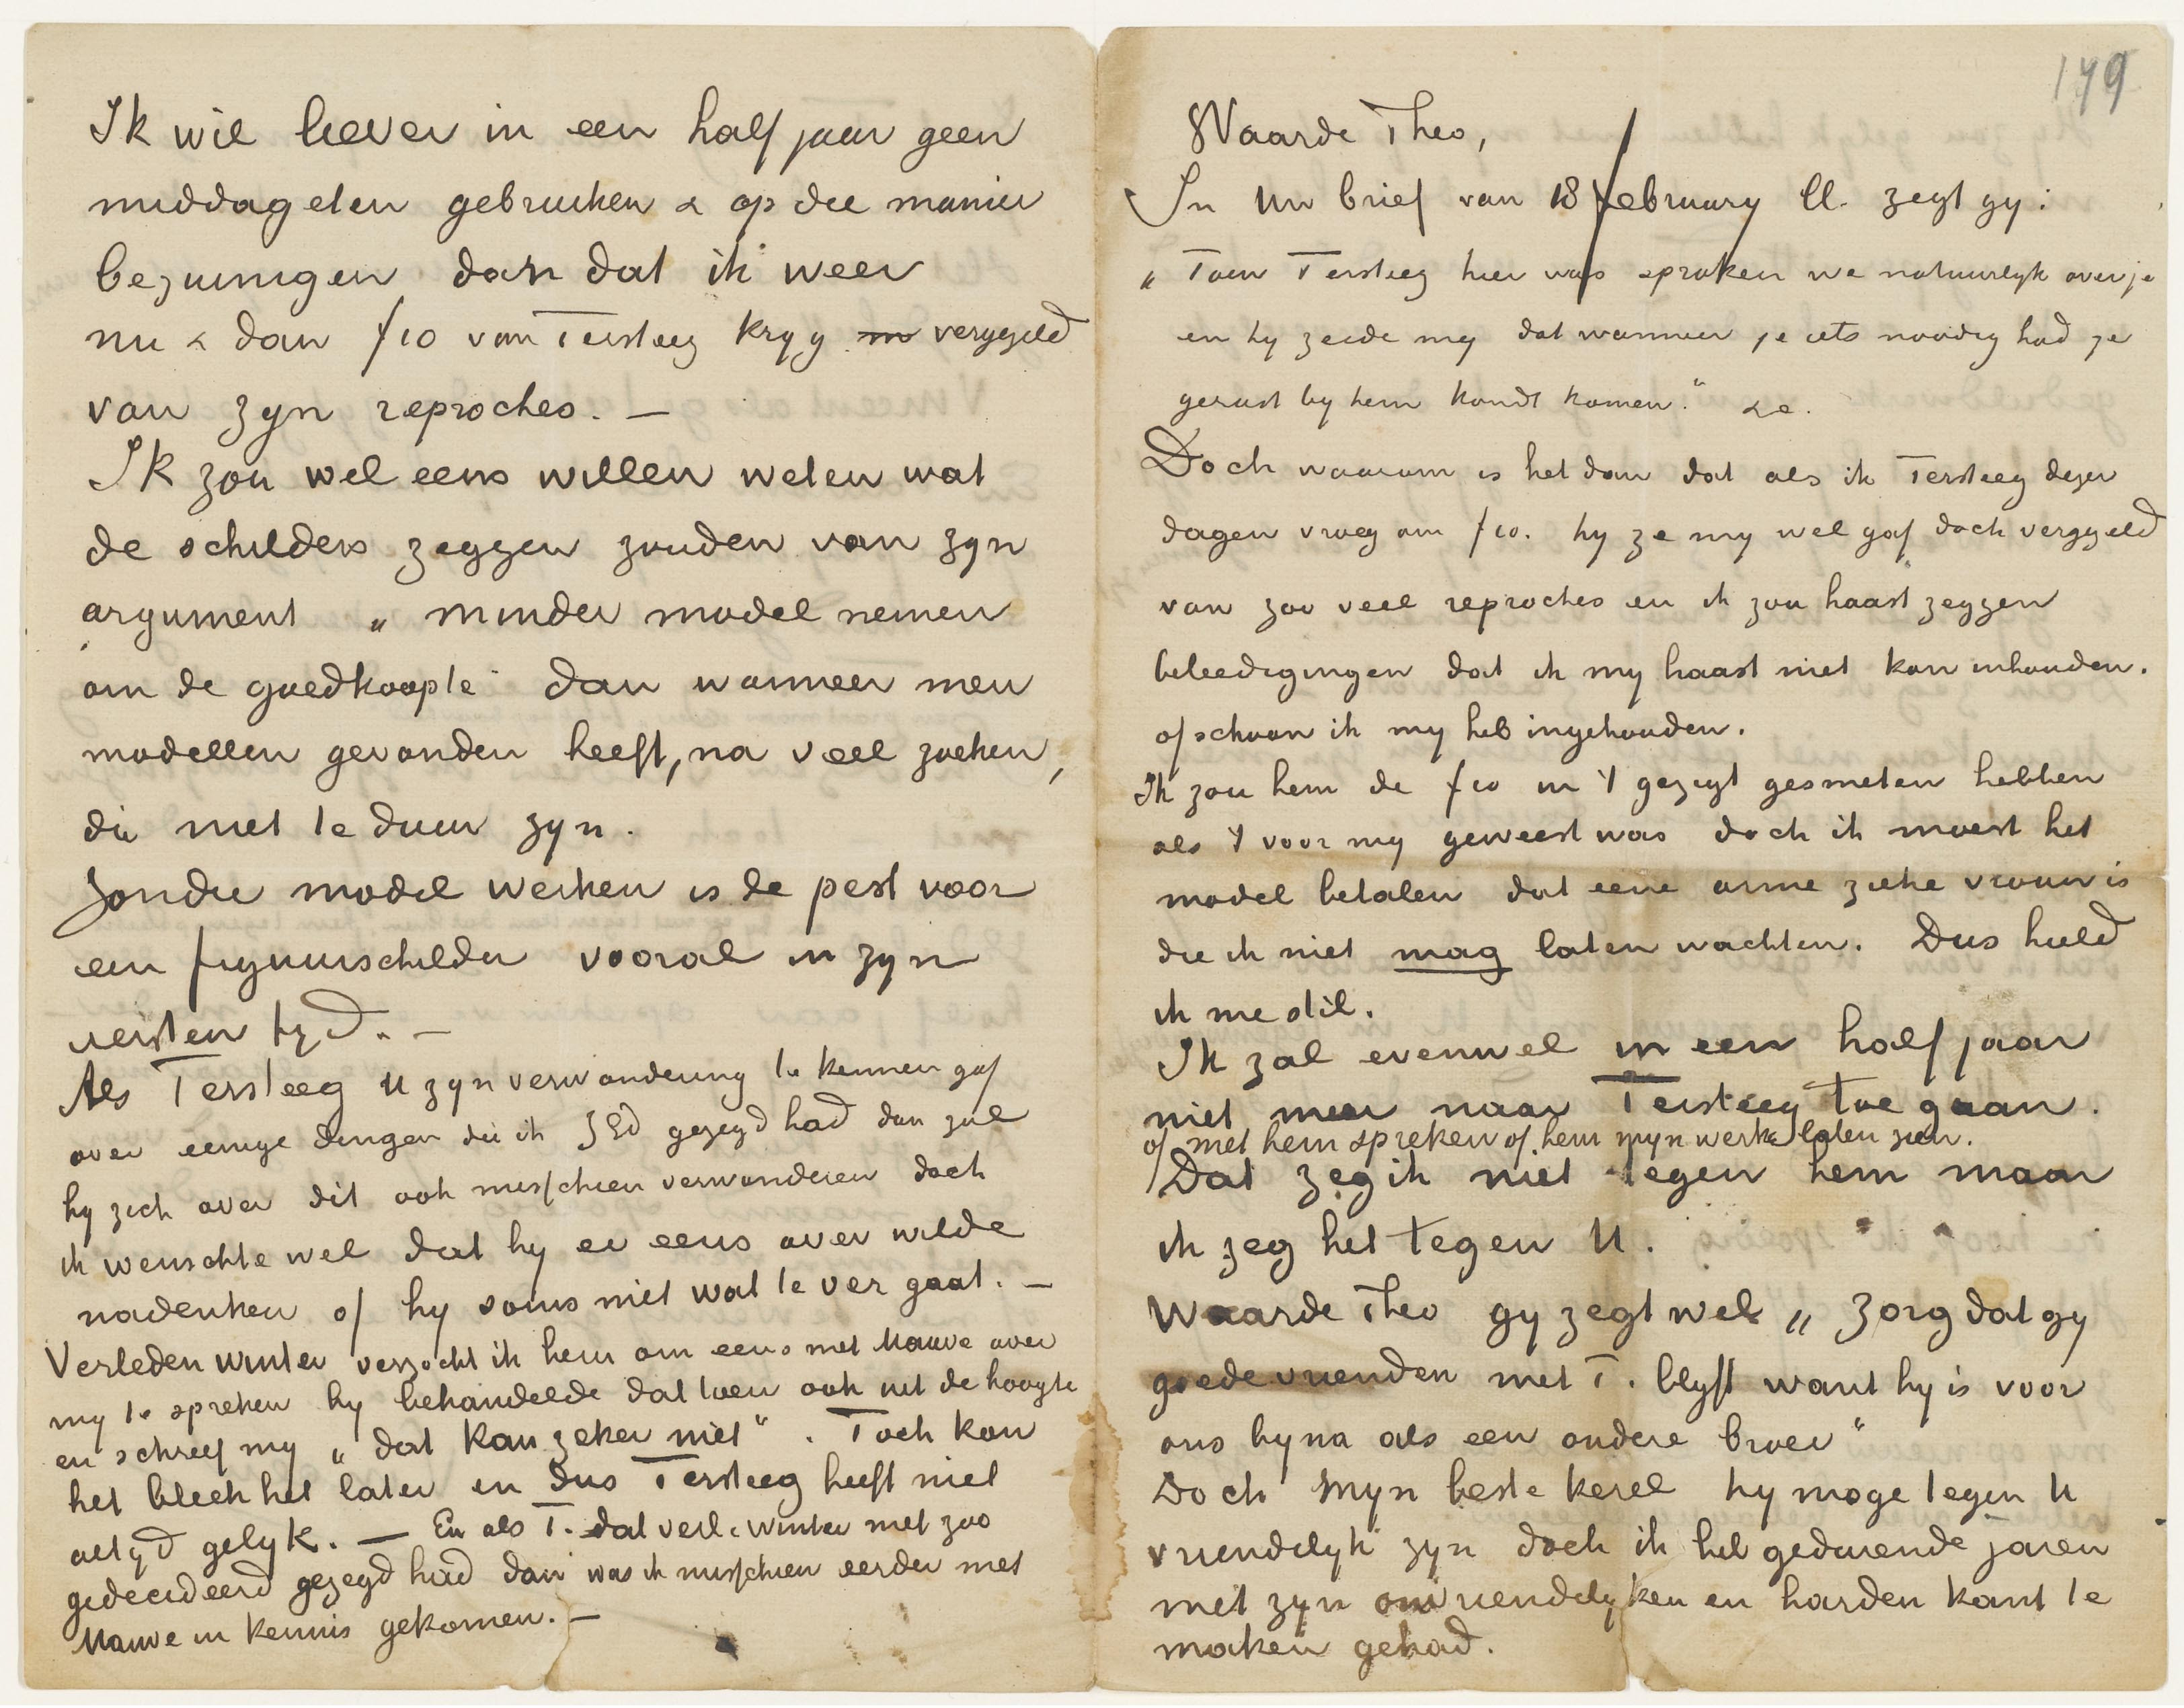 179
Waarde Theo,
In Uw brief van 18 february ll. zegt gy:
„Toen Tersteeg hier was spraken we natuurlyk over je
en hy zeide my dat wanneer je iets noodig had je
gerust by hem kondt komen.” &c.
Doch waarom is het dan dat als ik Tersteeg dezer
dagen vroeg om f10. hy ze my wel gaf doch vergezeld
van zoo veel reproches en ik zou haast zeggen
beleedigingen dat ik my haast niet kon inhouden.
ofschoon ik my heb ingehouden.
Ik zou hem de f10 in ’t gezigt gesmeten hebben
als ’t voor my geweest was doch ik moest het
model betalen dat eene arme zieke vrouw is
die ik niet mag laten wachten. Dus hield
ik me stil.
Ik zal evenwel in een half jaar
niet meer naar Tersteeg toe gaan.
of met hem spreken of hem myn werk laten zien.
Dat zeg ik niet tegen hem maar
ik zeg het tegen U.
Waarde Theo gy zegt wel „zorg dat gy
goede vrienden met T. blyft want hy is voor
ons byna als een oudere broer”
Doch myn beste kerel hy moge tegen U
vriendelyk zyn doch ik heb gedurende jaren
met zyn onvriendelyken en harden kant te
maken gehad.
Ik wil liever in een half jaar geen
middageten gebruiken & op die manier
bezuinigen dan dat ik weer
nu & dan f10 van Tersteeg kryg vergezeld
van zyn reproches. —
Ik zou wel eens willen weten wat
de schilders zeggen zouden van zyn
argument „minder model nemen
om de goedkoopte” dan wanneer men
modellen gevonden heeft, na veel zoeken,
die niet te duur zyn.
Zonder model werken is de pest voor
een figuurschilder vooral in zyn
eersten tyd. —
Als Tersteeg U zyn verwondering te kennen gaf
over eenige dingen die ik ZEd gezegd had dan zal
hy zich over dit ook misschien verwonderen doch
ik wenschte wel dat hy er eens over wilde
nadenken of hy soms niet wat te ver gaat. —
Verleden winter verzocht ik hem om eens met Mauve over
my te spreken hy behandelde dat toen ook uit de hoogte
en schreef my „dat kan zeker niet”. Toch kon
het bleek het later en dus Tersteeg heeft niet
altyd gelyk. — En als T. dat verl. winter niet zoo
gedecideerd gezegd had dan was ik misschien eerder met
Mauve in kennis gekomen. —